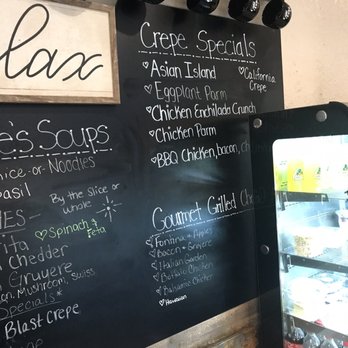 lax
Crepe Specials
Asian Island
California
Crepe
Eggplant Parm
Chicken Enchilada Crunch
Chicken Parm
BBQ Chicken, bacon, ch
e's Soups
ice-or-Noodles
asil
By the Slice or
whole
Spinach &
Feta
ita
Cheddar
Gruyere
Mushroom, Swiss
pecials*
Blast Crepe
Gourmet Grilled Che
Fontina + Apples
Bacon + Gruyere
Italian Garden
Buffalo Chicken
Balsamic Chicken
Hawaiian